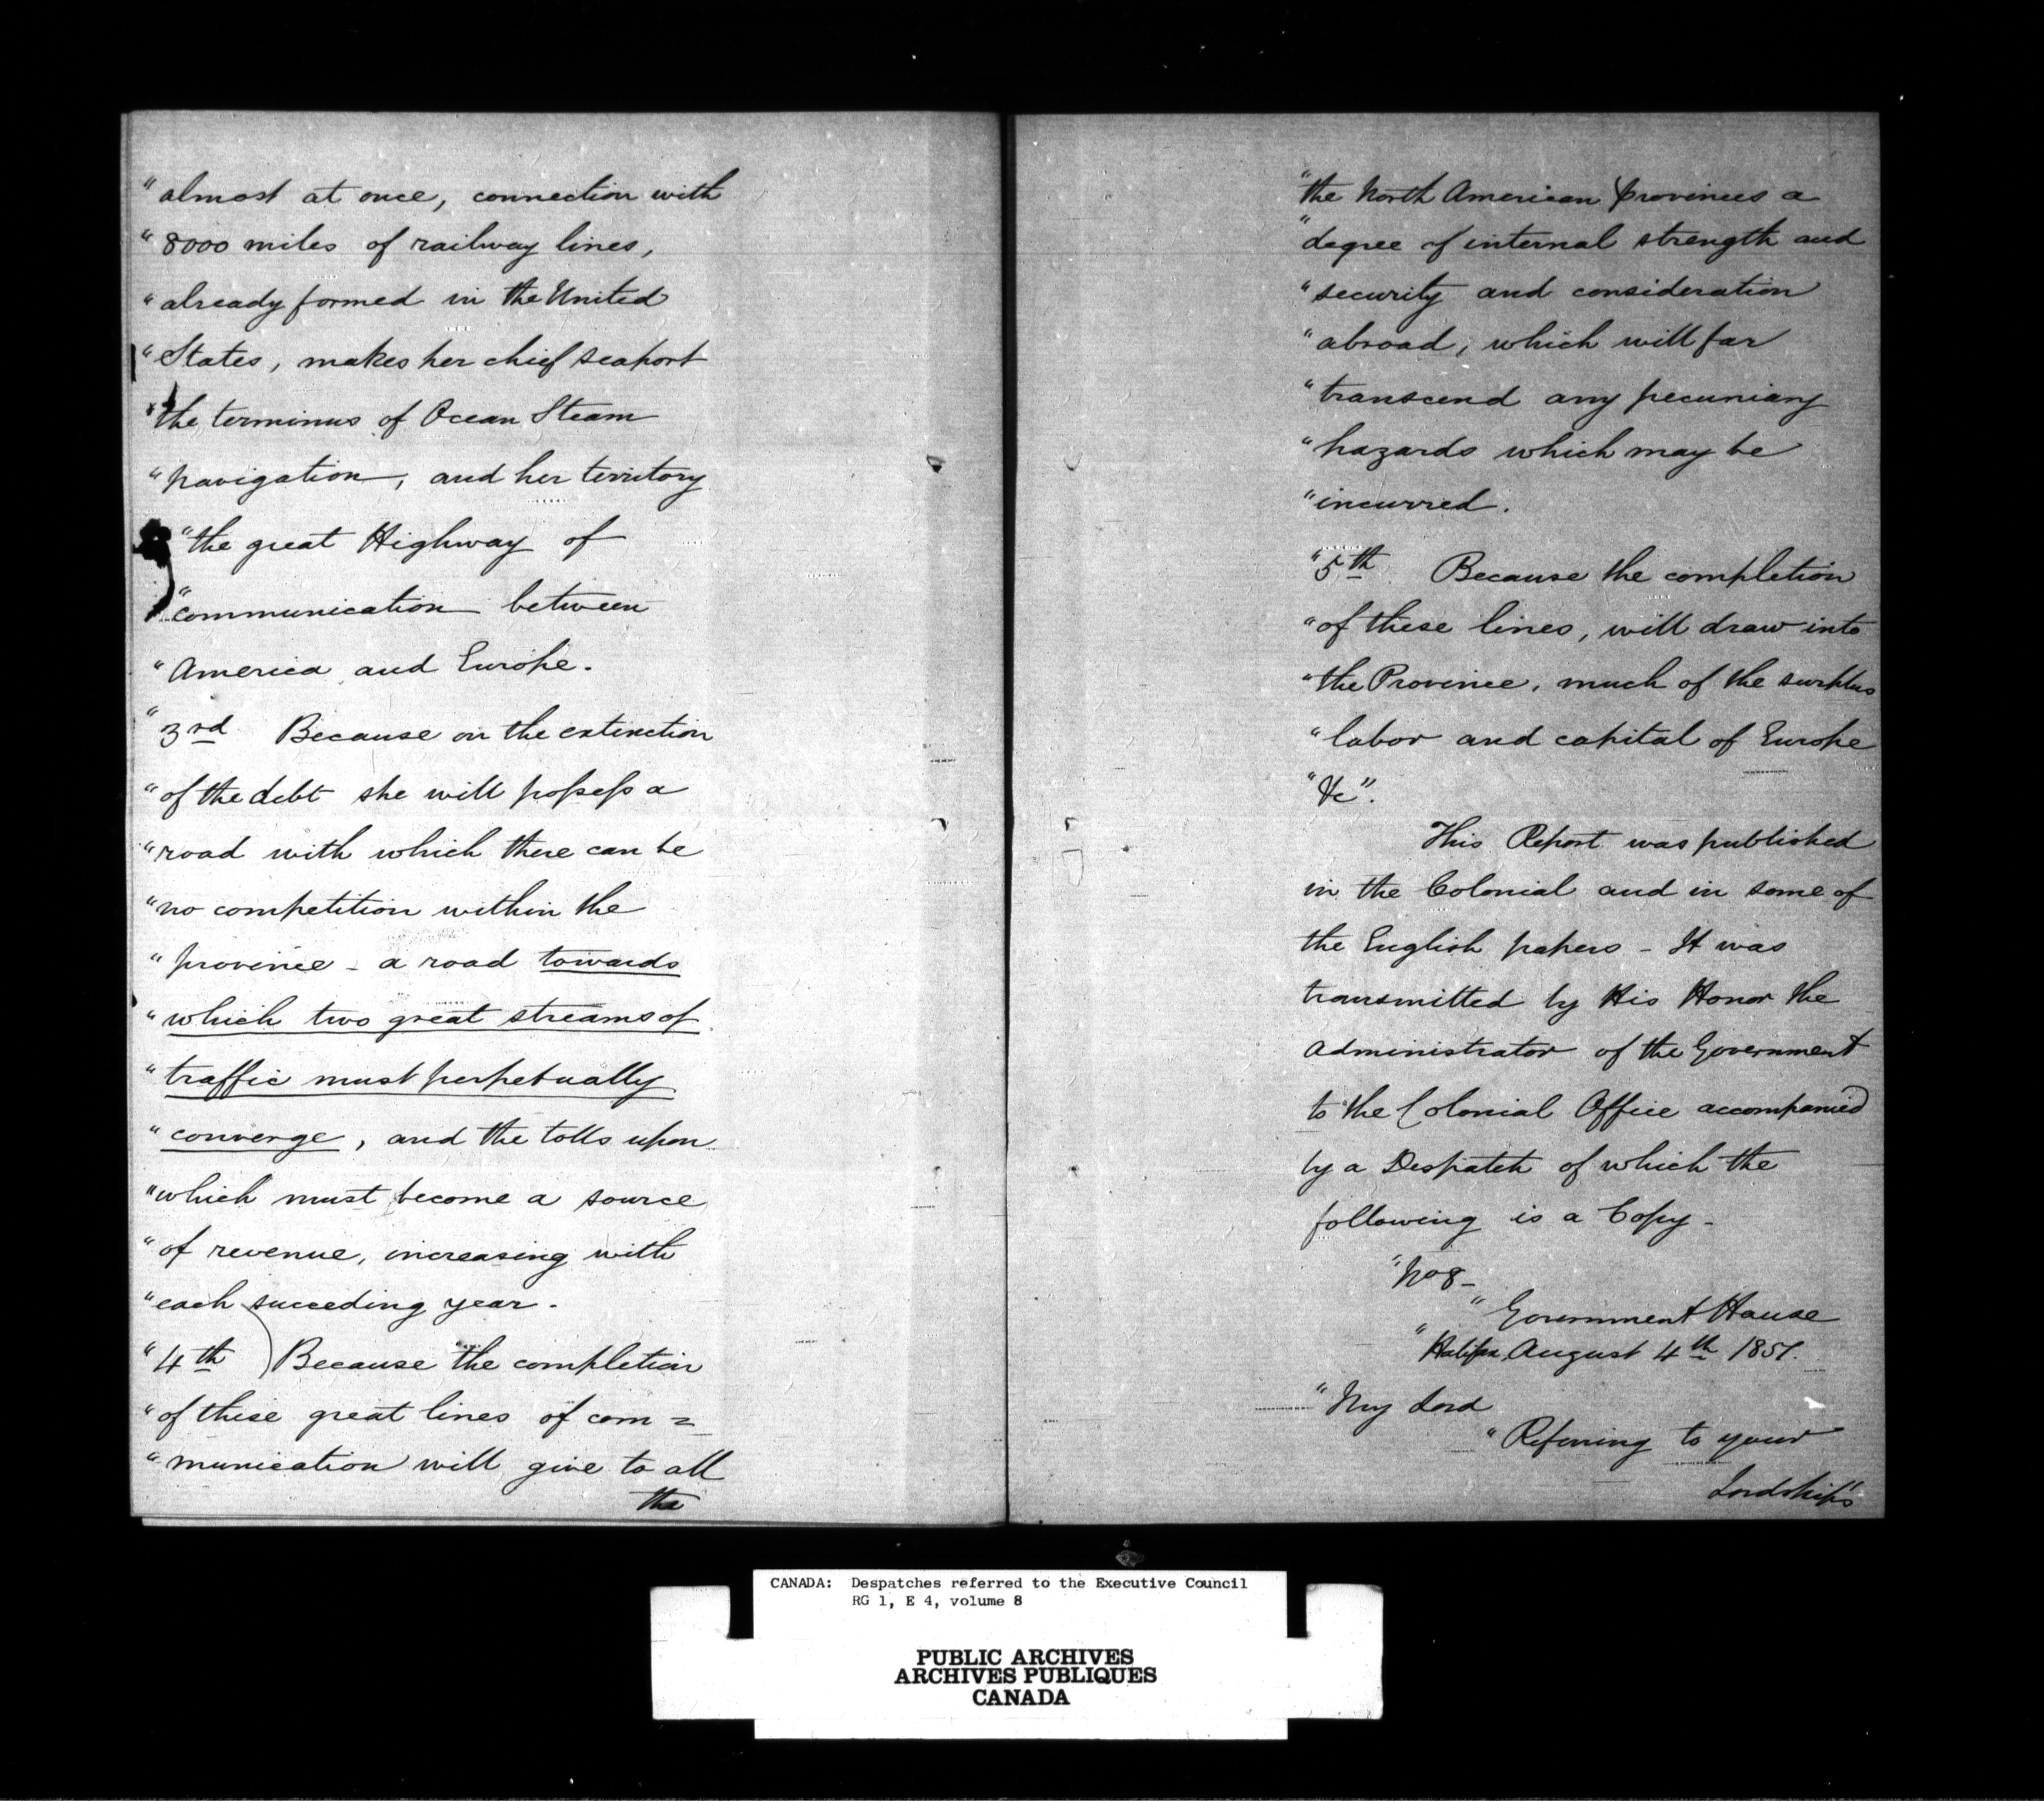 "almost at once, connection with
"8000 miles of railway lines,
"already formed in the United
"States, makes her chief seaport
"the terminus of Ocean Steam
"navigation, and her territory
"the great Highway of
"communication between
"America and Europe.
"3rd Because on the extinction
"of the debt she will possess a
"road with which there can be
"no competition within the
"province - a road towards
"which two great streams of
"traffic must perpetually
"converge, and the tolls upon
"which must become a source
"of revenue, increasing with
"each succeding year.
"4th) Because the completion
"of these great lines of com=
"munication will give to all
the
"the North American provinces a
"degree of internal strength and
"security and consideration
"abroad, which will far
"transcend any pecuniary
"hazards which may be
"incurred.
"5th Because the completion
"of these lines, will draw into
"the Province, much of the surplus
"labor and capital of Europe
"&c".
This Report was published
in the Colonial and in some of
the English papers - It was
transmitted by His Honor the
Administrator of the Government
to the Colonial Office accompanied
by a Despatch of which the
following is a Copy -
"No 8-
"Government House
"Halifax, August 4th 1851.
"My Lord
"Referring to your
Lordship's
CANADA: Despatches referred to the Executive Council
RG 1, E 4, volume 8
PUBLIC ARCHIVES
ARCHIVES PUBLIQUES
CANADA